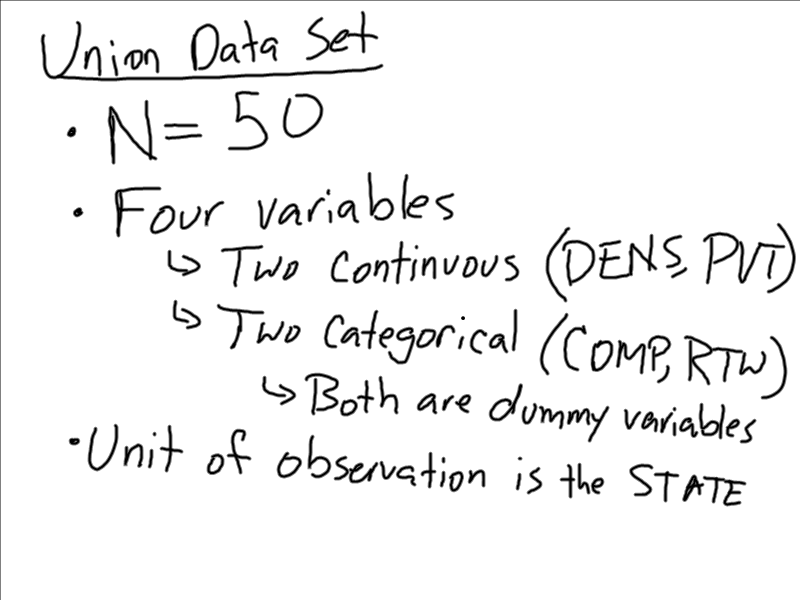 Union Data Set
• N = 50
• Four variables
↳ Two Continuous (DENS, PVT)
↳ Two Categorical (COMP, RTW)
↳ Both are dummy variables
• Unit of observation is the STATE